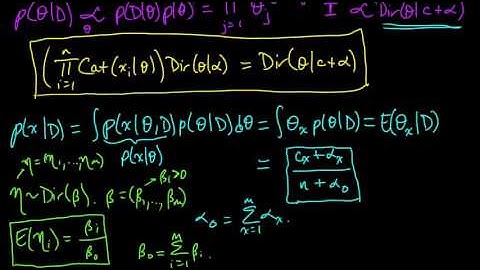 p(θ|D) ∝_θ p(D|θ)p(θ) = ∏_{j=1} θ_j I ∝ Dir(θ|c+α)
(∏_{i=1}^{n} Cat(x_i|θ)) Dir(θ|α) = Dir(θ|c+α)
p(x|D) = ∫ p(x|θ,D) p(θ|D) dθ = ∫ θ_x p(θ|D) = E(θ_x|D)
p(x|θ)
η = (η_1,...,η_m)
= (c_x + α_x)/(n + α_0)
η ~ Dir(β). β = (β_1,...,β_m) β_i > 0
α_0 = ∑_{x=1}^{m} α_x.
E(η_i) = β_i/β_0
β_0 = ∑_{i=1}^{m} β_i.